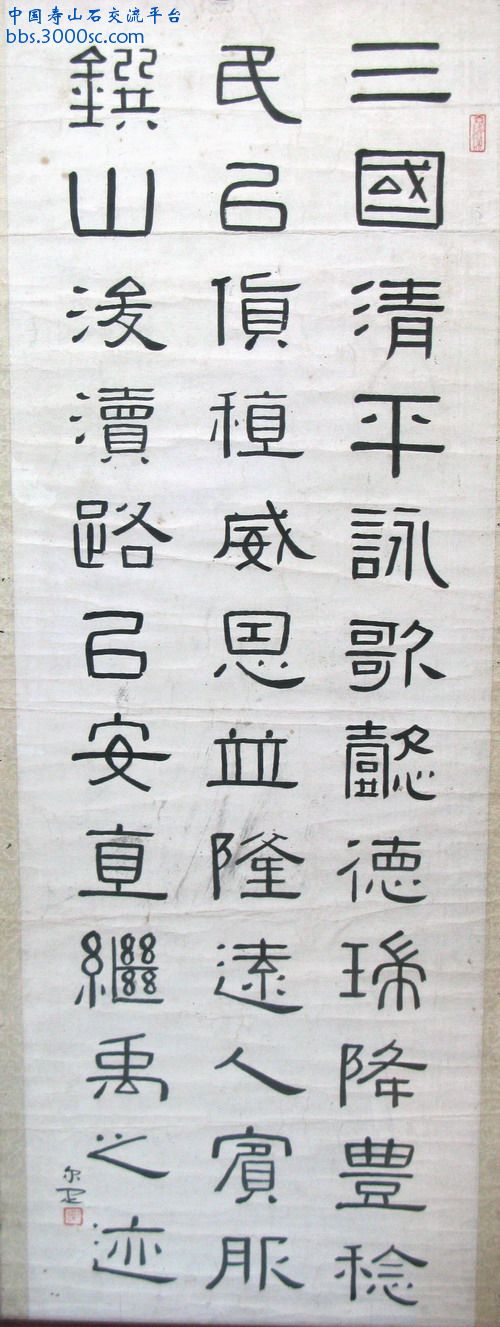 中国寿山石交流平台
bbs.3000sc.com
三國清平詠歌懿德瑞降豊稔
民㠯貨稙威恩並隆遠人賓服
鐉山浚瀆路㠯安直繼禹之迹
尔疋